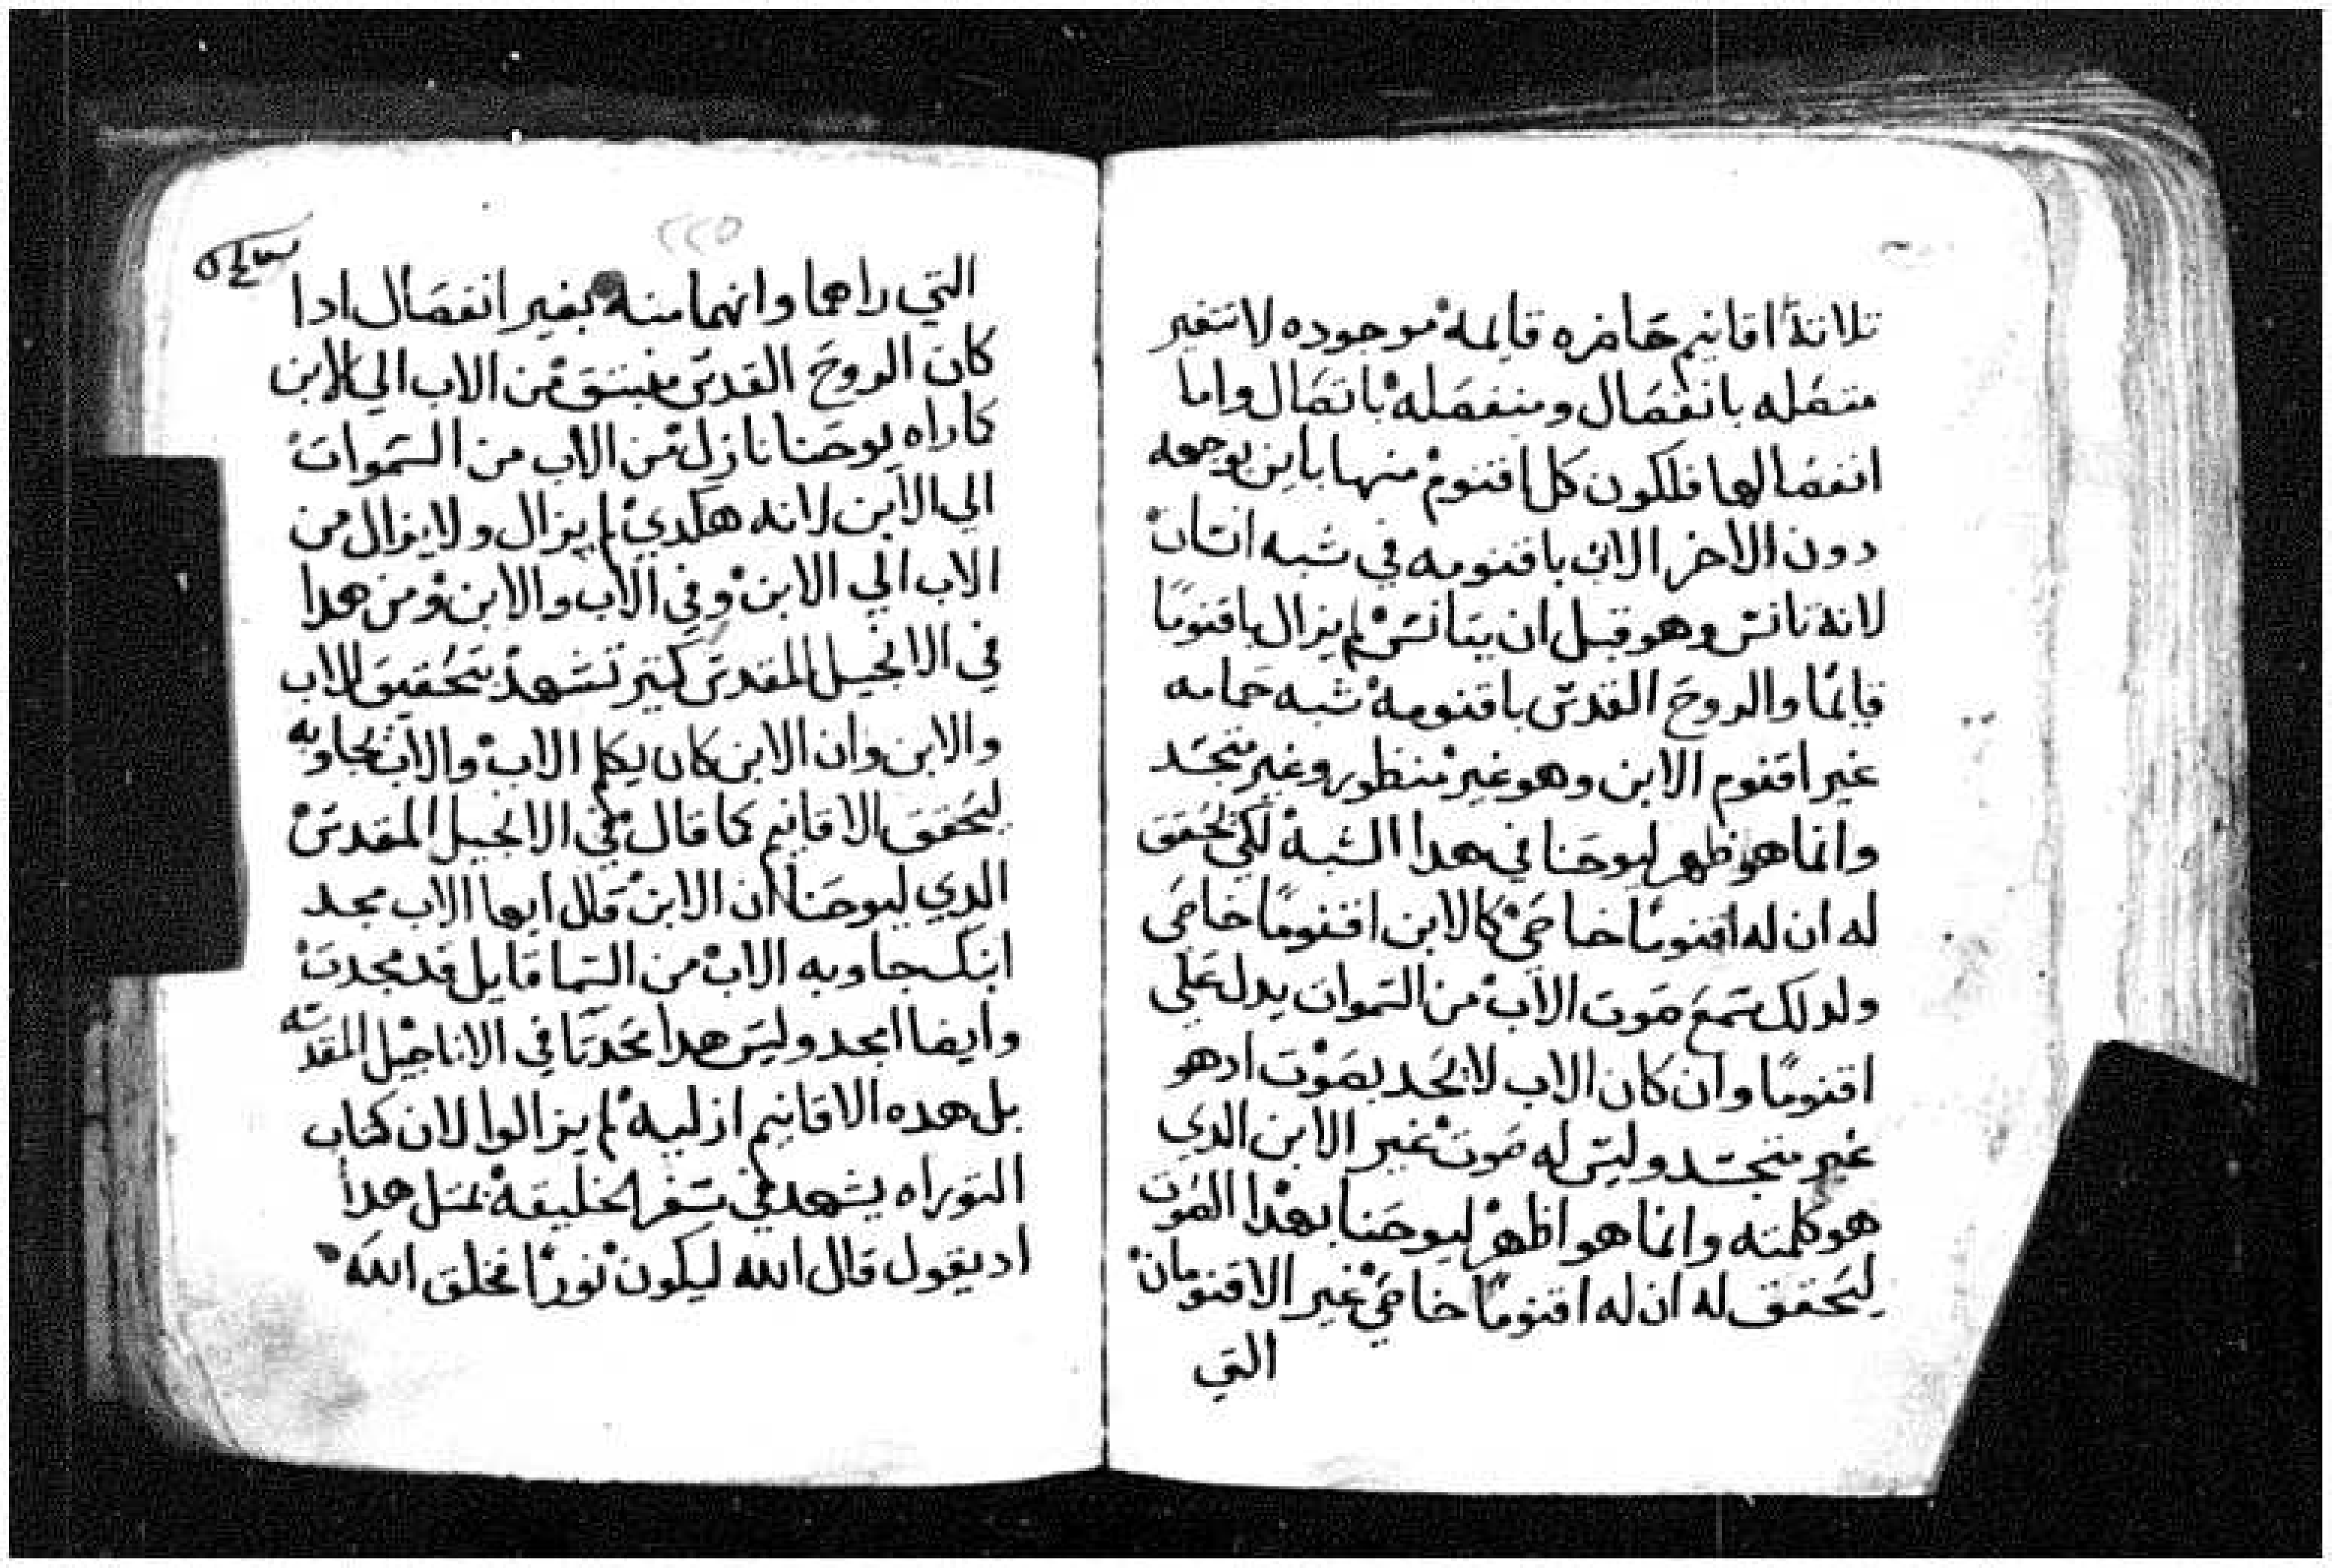 تلاتة اقانيم حاضره قايمة موجوده لا تتغير
متصله بانفصال ومنفصله باتصال واما
انفصالها فلكون كل اقنوم منها باين بوجهه
دون الاخر الابن باقنومه في شبه انسان
لانه تانس وهو قبل ان يتانس لم يزال باقنومًا
قايمًا والروح القدس باقنومة شبه حمامه
غير اقنوم الابن وهو غير منظور وغير متجسد
وانما هو ظهر ليوحنا في هدا الشبه لكي يحقق
له ان له اقنومًا خاصي كالابن اقنومًا خاصي
ولدلك سمع صوت الاب من السموات يدل علي
اقنومًا وان كان الاب لا يحد بصوت اد هو
غير متجسد وليس له صوت غير الابن الدي
هو كلمته وانما هو اظهر ليوحنا بهدا الصوت
ليحقق له ان له اقنومًا خاصي غير الاقنومان
التي
٢٢٥
التي راهما وانهما منه بغير انفصال ادا
كان الروح القدس منبتق من الاب الي الابن
كما راه يوحنا نازل من الاب من السموات
الي الابن لانه هكدي لم يزال ولا يزال من
الاب الي الابن وفي الاب والابن ومن هدا
في الانجيل المقدس كتير تشهد بتحقيق الاب
والابن وان الابن كان يكلم الاب والاب يجاوبه
ليحقق الاقانيم كما قال في الانجيل المقدس
الدي ليوحنا ان الابن قال ايها الاب مجد
ابنك جاوبه الاب من السما قايل قد مجدت
وايضا امجد وليس هدا محدتا في الاناجيل المقدسه
بل هده الاقانيم ازلية لم يزالوا لان كتاب
التوراه يشهد في سفر الخليقة بمتل هدا
اد يقول قال الله ليكون نورًا فخلق الله